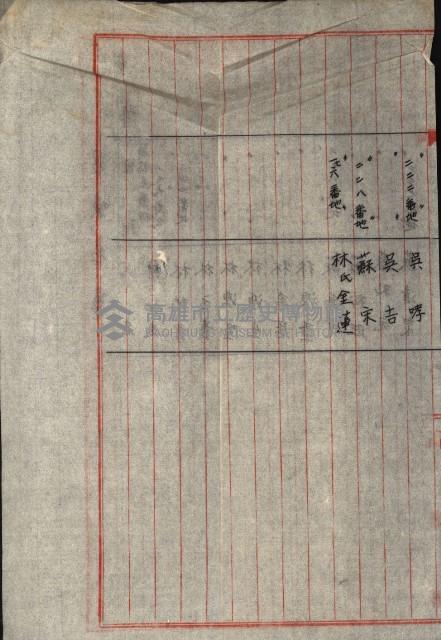 〃 二二二番地〃 吳哮
〃 〃 吳吉
〃 二二八番地〃 蘇宋
〃 一六八番地〃 林氏金蓮
高雄市立歷史博物館
KAOHSIUNG MUSEUM OF HISTORY